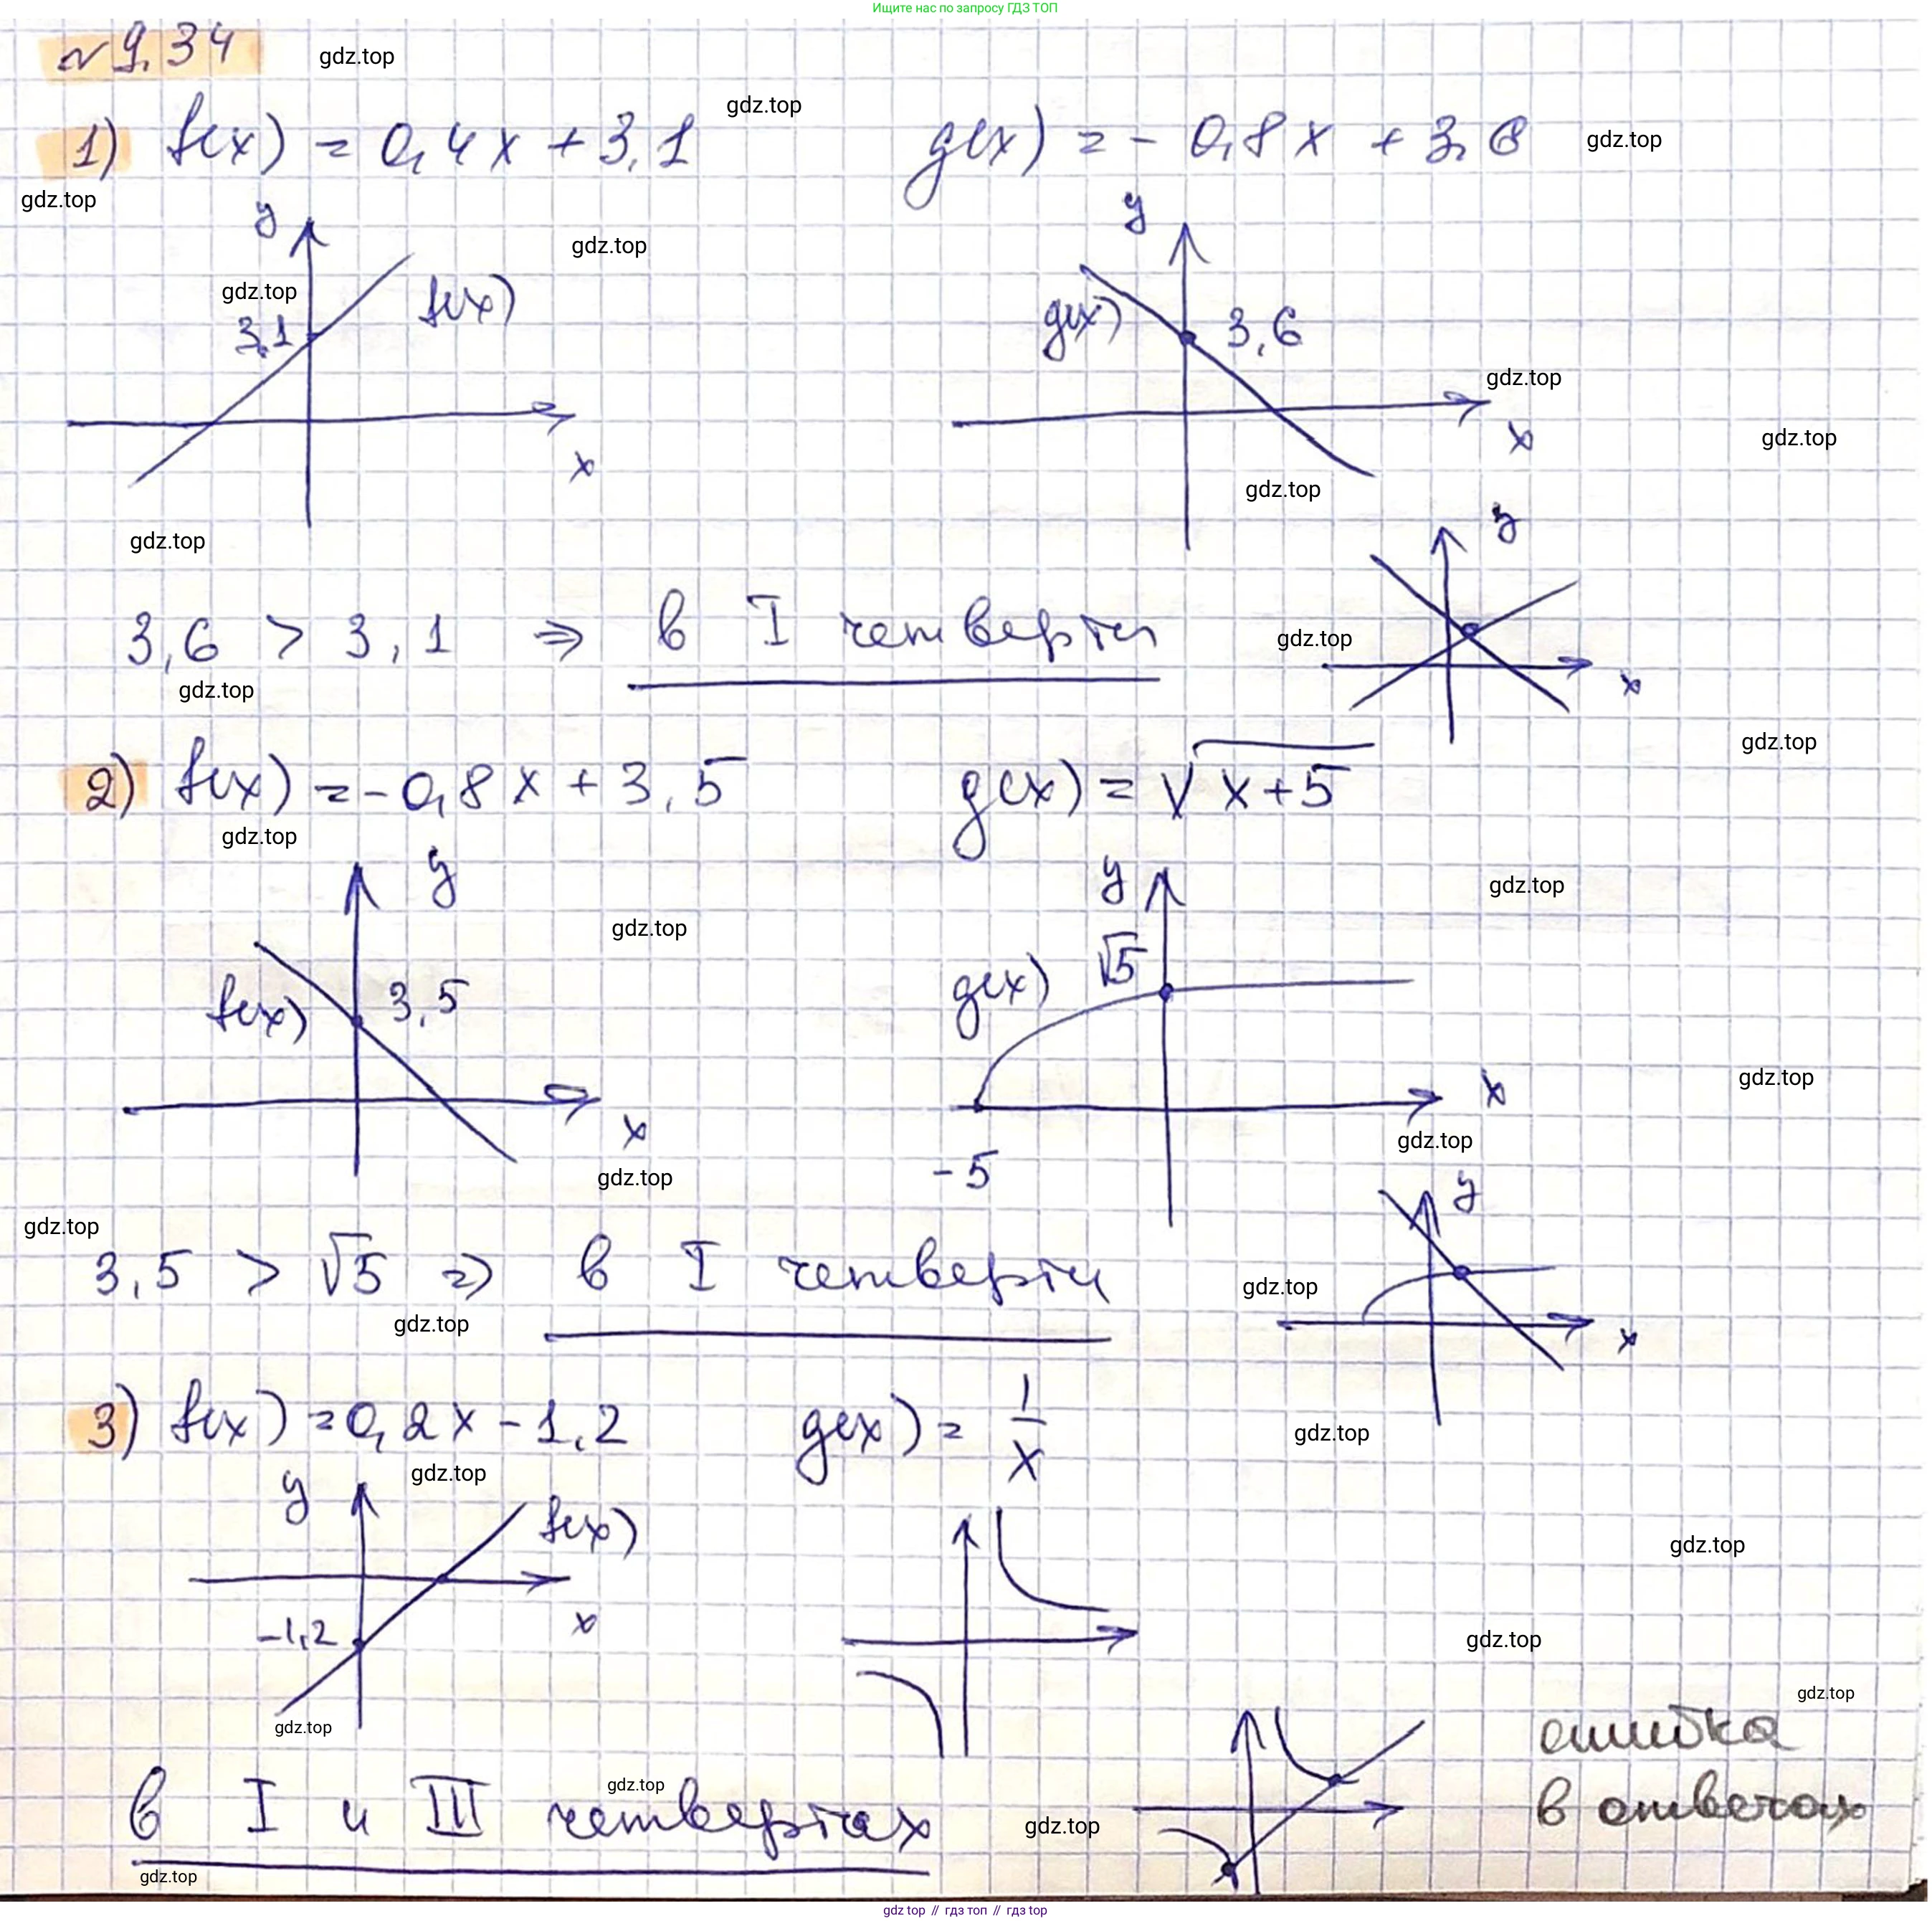 Ищите нас по запросу ГДЗ ТОП
№ 9.34
gdz.top
1) f(x) = 0,4x + 3,1
gdz.top
g(x) = - 0,8x + 3,6
gdz.top
gdz.top
y
gdz.top
y
gdz.top
3,1
f(x)
g(x)
3,6
gdz.top
x
x
gdz.top
gdz.top
gdz.top
y
3,6 > 3,1 ⇒ в I четверти
gdz.top
gdz.top
x
gdz.top
2) f(x) = -0,8x + 3,5
g(x) = √x+5
gdz.top
y
y
gdz.top
gdz.top
f(x)
3,5
g(x)
√5
x
x
gdz.top
gdz.top
gdz.top
-5
y
gdz.top
3,5 > √5 ⇒ в I четверти
gdz.top
gdz.top
x
3) f(x) = 0,2x - 1,2
g(x) = 1/x
gdz.top
gdz.top
y
f(x)
gdz.top
-1,2
x
gdz.top
gdz.top
gdz.top
ошибка
в ответах
gdz.top
в I и III четвертях
gdz.top
gdz.top
gdz top // гдз топ // gdz top